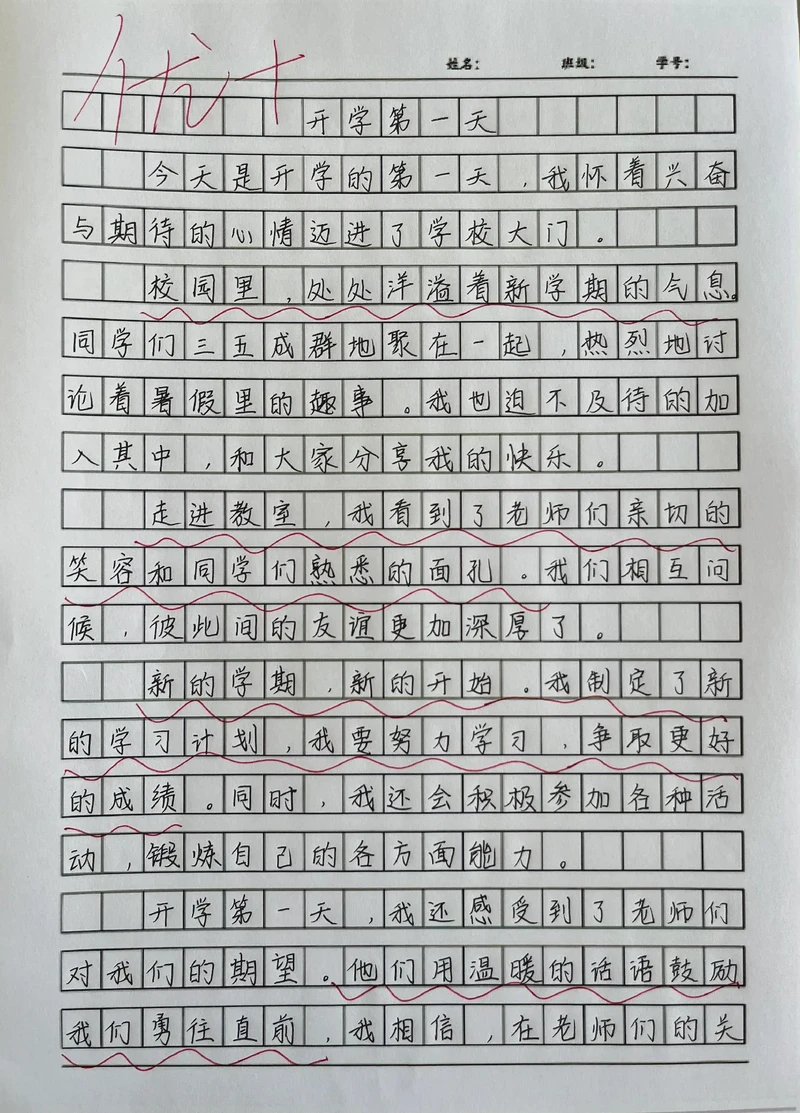 优+
姓名: 班级: 学号:
开学第一天
今天是开学的第一天，我怀着兴奋
与期待的心情迈进了学校大门。
校园里，处处洋溢着新学期的气息。
同学们三五成群地聚在一起，热烈地讨
论着暑假里的趣事。我也迫不及待的加
入其中，和大家分享我的快乐。
走进教室，我看到了老师们亲切的
笑容和同学们熟悉的面孔。我们相互问
候，彼此间的友谊更加深厚了。
新的学期，新的开始。我制定了新
的学习计划，我要努力学习，争取更好
的成绩。同时，我还会积极参加各种活
动，锻炼自己的各方面能力。
开学第一天，我还感受到了老师们
对我们的期望。他们用温暖的话语鼓励
我们勇往直前，我相信，在老师们的关